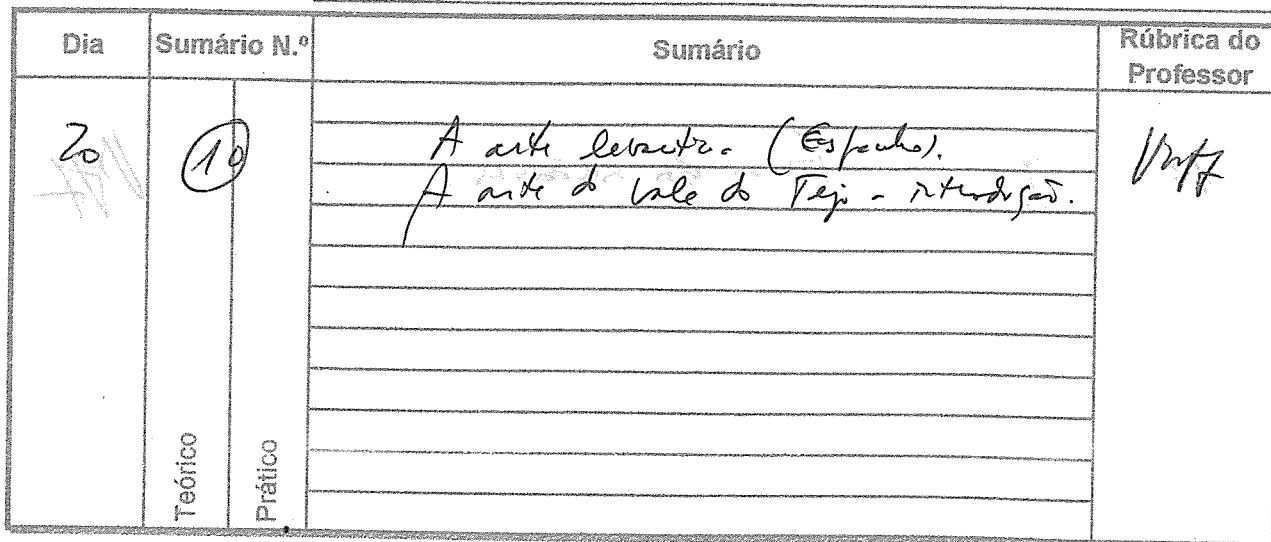 Dia Sumário N.º Sumário Rúbrica do Professor
20 10 A arte levantina (Espanha).
A arte do Vale do Tejo - introdução.
Teórico Prático